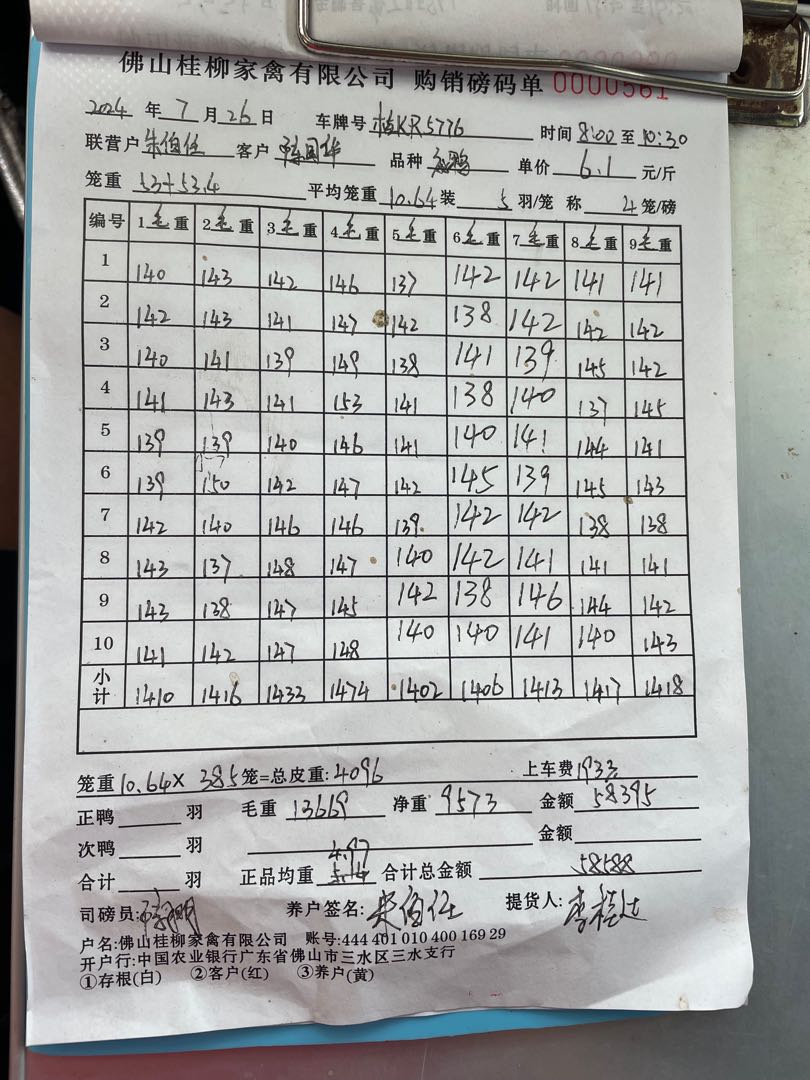 佛山桂柳家禽有限公司 购销磅码单 0000561
2024 年 7 月 26 日 车牌号 桂KR5776 时间 8:00 至 10:30
联营户 朱伯任 客户 品种 单价 6.1 元/斤
笼重 53+53.4 平均笼重 10.64 装 5 羽/笼 称 4 笼/磅
编号 1毛重 2毛重 3毛重 4毛重 5毛重 6毛重 7毛重 8毛重 9毛重
1 140 143 142 146 137 142 142 141 141
2 142 143 141 147 142 138 142 142 142
3 140 141 139 149 138 141 139 145 142
4 141 143 141 153 141 138 140 137 145
5 139 139 140 146 141 140 141 144 141
6 139 150 142 147 142 145 139 145 143
7 142 140 146 146 139 142 142 138 138
8 143 137 148 147 140 142 141 141 141
9 143 138 147 145 142 138 146 144 142
10 141 142 147 148 140 140 141 140 143
小计 1410 1416 1433 1474 1402 1406 1413 1417 1418
笼重 10.64× 385 笼=总皮重: 4096 上车费 193元
正鸭 羽 毛重 13669 净重 9573 金额 58395
次鸭 羽 4.97 金额
合计 羽 正品均重 5.14 合计总金额 58588
司磅员: 养户签名: 朱伯任 提货人:
户名:佛山桂柳家禽有限公司 账号:444 401 010 400 169 29
开户行:中国农业银行广东省佛山市三水区三水支行
①存根(白) ②客户(红) ③养户(黄)